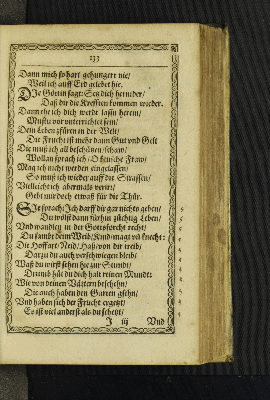 133
Dann mich so hart gehungert nie/
Weil ich auff Erd gelebet hie.
Die Göttin sagt: Setz dich hernider/
Daß dir die Kreffte kommen wieder.
Dann ehe ich dich werde lassn herein/
Mustu vor unterrichtet sein/
Dein Leben zführen in der Welt/
Die Frucht ist mehr dann Gut und Gelt
Die mustu all beschawen/
Wollan sprach ich/ O keusche Fraw/
Mag ich nicht werden eingelassen/
So muß ich wieder auff die Strassen/
Vielleicht ich abermals verirr/
Gebt mir doch etwas für die Thür.
Sie sprach: Ich darff dir gar nichts geben/
Du wölst dann fürhin züchtig Leben/
Und wandlen in der Gottsforcht recht/
Du sampt deim Weib/ Kind magd vñ knecht:
Die Hoffart/ Neid/ Haß/ von dir treib/
Darzu dir auch verschwiegen bleib/
Waß du wirst sehen hie zur Stundt/
Drumb halt du dich halt reinen Mundt:
Wie von deinen Vättern beschehn/
Die auch haben den Garten gsehn/
Und haben sich der Frucht ergetzt/
So ist viel anderst als du schetzt/
J iij Und